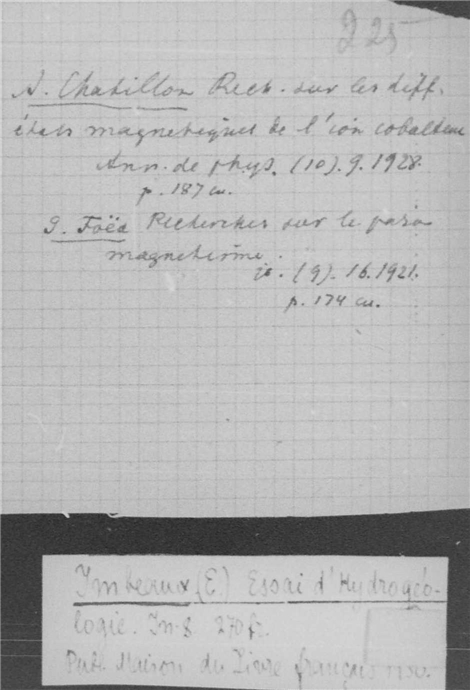 225
A. Chatillon Rech. sur les diff.
états magnetiques de l'ion cobalteux
Ann. de phys. (10). 9. 1928.
p. 187 cu.
G. Foëx Recherches sur le para
magnetisme.
io. (9). 16. 1921.
p. 174 cu.
Imbeaux (E.) Essai d'Hydrogéo-
logie. In-8 270 fr.
Publ. Maison du Livre français